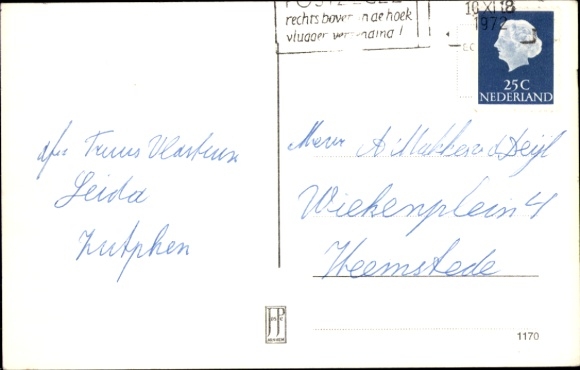 POSTZEGEL
rechts boven in de hoek
vlugger verzending!
16 XI 18
1972
25 C
NEDERLAND
afz Truus
Leida
Zutphen
Mevr A Makker d Deijl
Wiekenplein 4
Heemstede
JP
1170